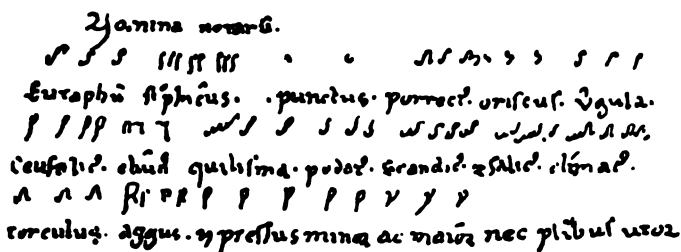 nomina notarū.
Eutaphū st'phicus. punctus. porrect'. oriscus. v̄gula.
ceufalic'. quilisma. podat'. scandic'. & salic'. climac'.
torculus. aggus. & pressus minor ac maior nec plibus utor